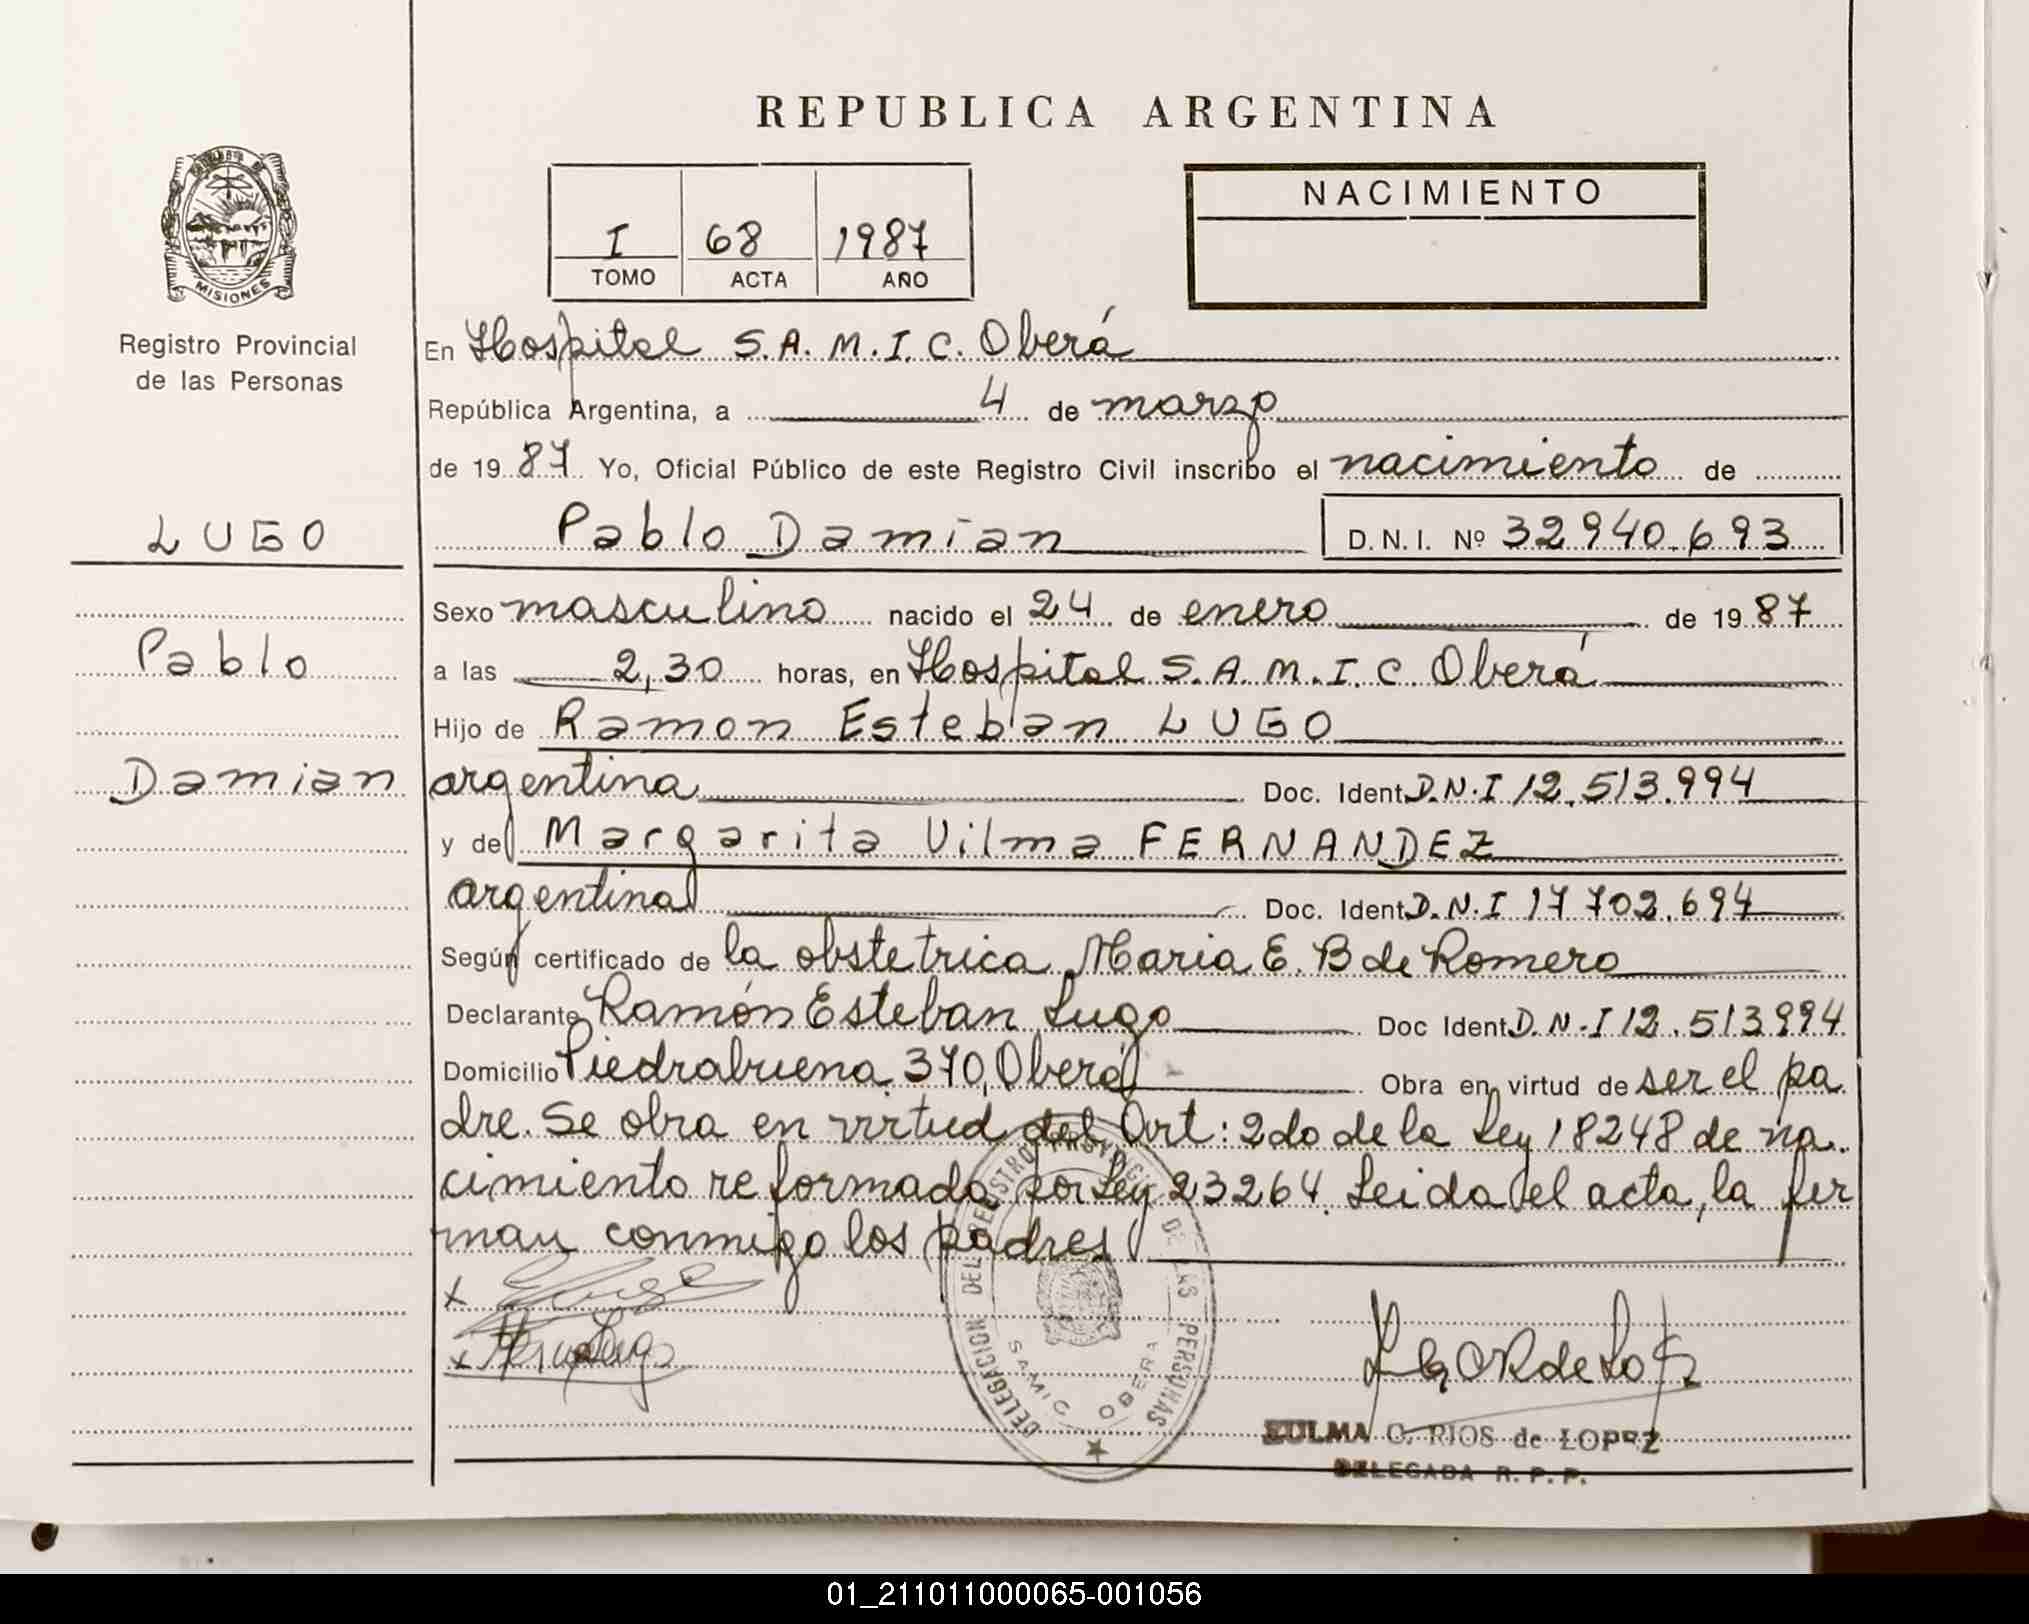 REPUBLICA ARGENTINA
NACIMIENTO
I 68 1987
TOMO ACTA AÑO
MISIONES
Registro Provincial
de las Personas
En Hospital S.A.M.I.C. Oberá
República Argentina, a 4 de marzo
de 1987 Yo, Oficial Público de este Registro Civil inscribo el nacimiento de
LUGO
Pablo Damian D.N.I. Nº 32.940.693
Sexo masculino nacido el 24 de enero de 1987
Pablo
a las 2,30 horas, en Hospital S.A.M.I.C. Oberá
Hijo de Ramon Esteban LUGO
Damian
argentina Doc. Ident. D.N.I 12.513.994
y de Margarita Vilma FERNANDEZ
argentina Doc. Ident. D.N.I 17 702.694
Según certificado de la obstetrica Maria E. B de Romero
Declarante Ramón Esteban Lugo Doc Ident. D.N.I 12.513994
Domicilio Piedrabuena 370, Oberá Obra en virtud de ser el pa
dre. Se obra en virtud del Art: 2do de la Ley 18248 de na
cimiento reformada por Ley 23264. Leida el acta, la fir
man conmigo los padres
DELEGACION DEL REGISTRO PROVINCIAL DE LAS PERSONAS
SAMIC OBERA
ZULMA C. RIOS de LOPEZ
DELEGADA R.P.P.
01_211011000065-001056